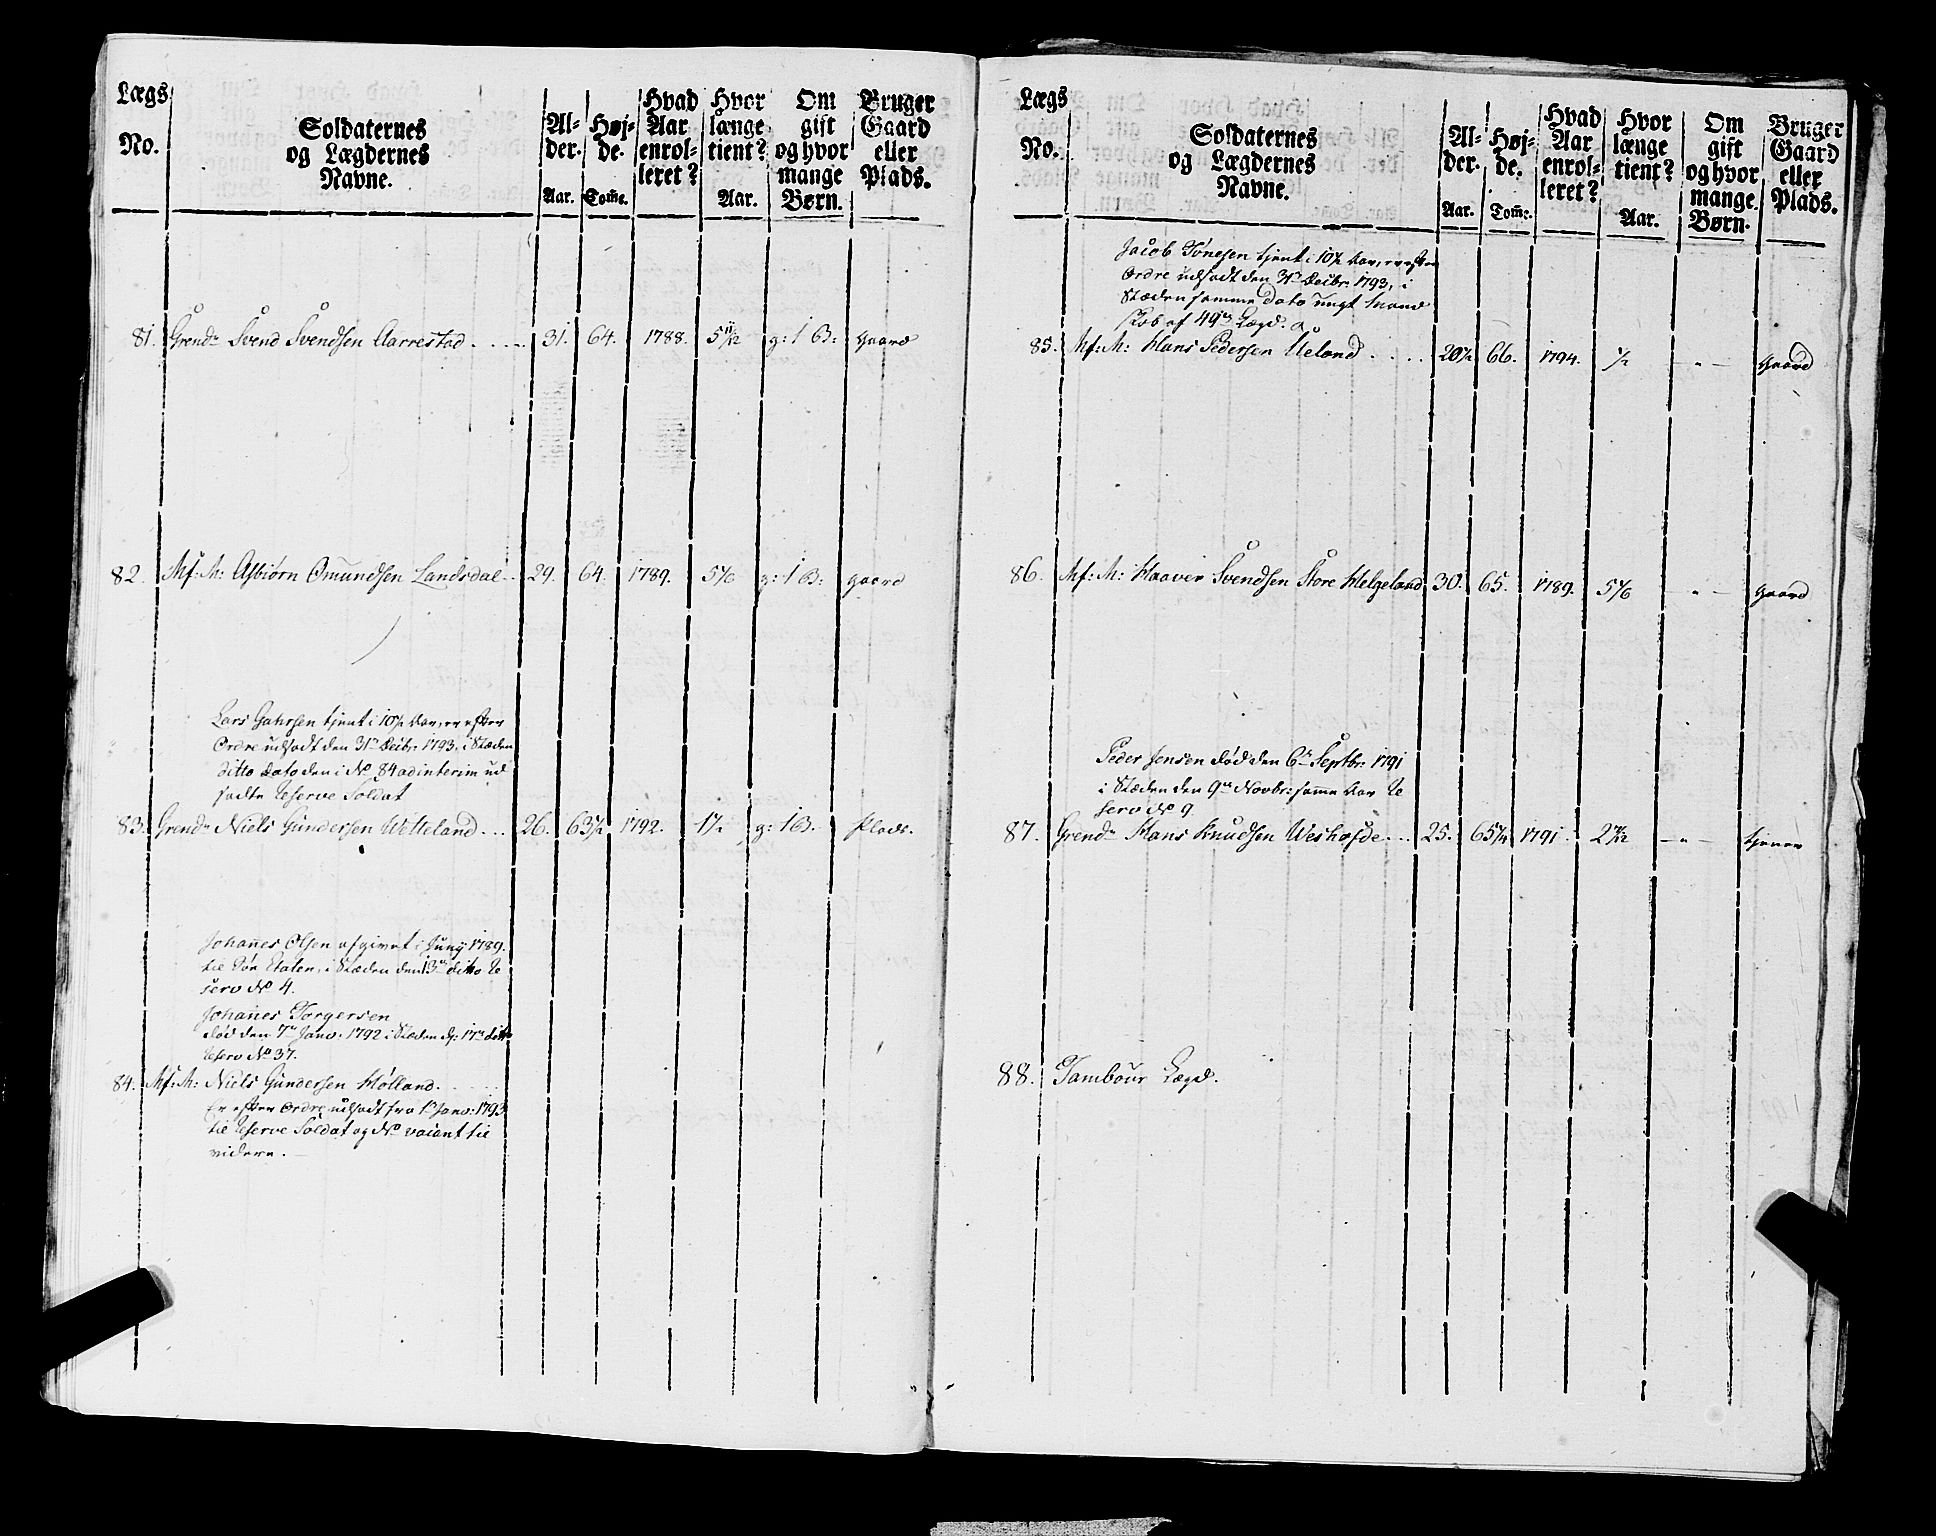 Lægs
No.
Soldaternes
og Lægdernes
Navne.
Al-
der.
Aar.
Høj-
de.
Tom̃e.
Hvad
Aar
enrol-
leret?
Hvor
længe
tient?
Aar.
Om
gift
og hvor
mange
Børn.
Bruger
Gaard
eller
Plads.
81. Grend: Svend Svendsen Aarrestad . . . . 31. 64. 1788. 5 11/12 g: 1 B: gaard
82. Mf: M: Asbiørn Omundsen Landsdal . . 29. 64. 1789. 5 g: 1 B: gaard
Lars Gahrsen tjent i 10½ Aar, er efter
Ordre udsadt den 31te Decbr: 1793, i Stæden
ditto dato den i No 84 ad interim ud
sadte Reserve Soldat
83. Grend: Niels Gundersen Wetteland . . . 26. 63½ 1792. 1½ g: 1 B. plads.
Johanes Olsen afgivet i Juny 1789.
til Søe Etaten, i Stæden den 13de ditto Re
serv No 4.
Johanes Torgersen
død den 7de Janv: 1792 i Stæden d: 17de ditto
Reserv No 37.
84. Mf: M: Niels Gundersen Hølland.
Er efter Ordre udsadt fra 1te Janv: 1793
til Reserve Soldat og No vacant til
videre.
Lægs
No.
Soldaternes
og Lægdernes
Navne.
Al-
der.
Aar.
Høj-
de.
Tom̃e.
Hvad
Aar
enrol-
leret?
Hvor
længe
tient?
Aar.
Om
gift
og hvor
mange
Børn.
Bruger
Gaard
eller
Plads.
Jacob Tønesen tjent i 10½ Aar, er efter
Ordre udsadt den 31te Decbr: 1793, i
Stæden samme dato ungt Mand
skab af 49de Lægd.
85. Mf: M: Hans Pedersen Ueland . . . . 20½ 66. 1794. ½ — " — gaard
86. Mf: M: Haaver Svendsen Store Helgeland 30. 65. 1789. 5 — " — gaard
Peder Jensen død den 6te Septbr: 1791
i Stæden den 9de Novbr: samme Aar Re
serv No 9.
87. Grend: Hans Knudsen Weshofde . . . 25. 65¼ 1791. 2 — " — tjener
88. Tambour Lægd.